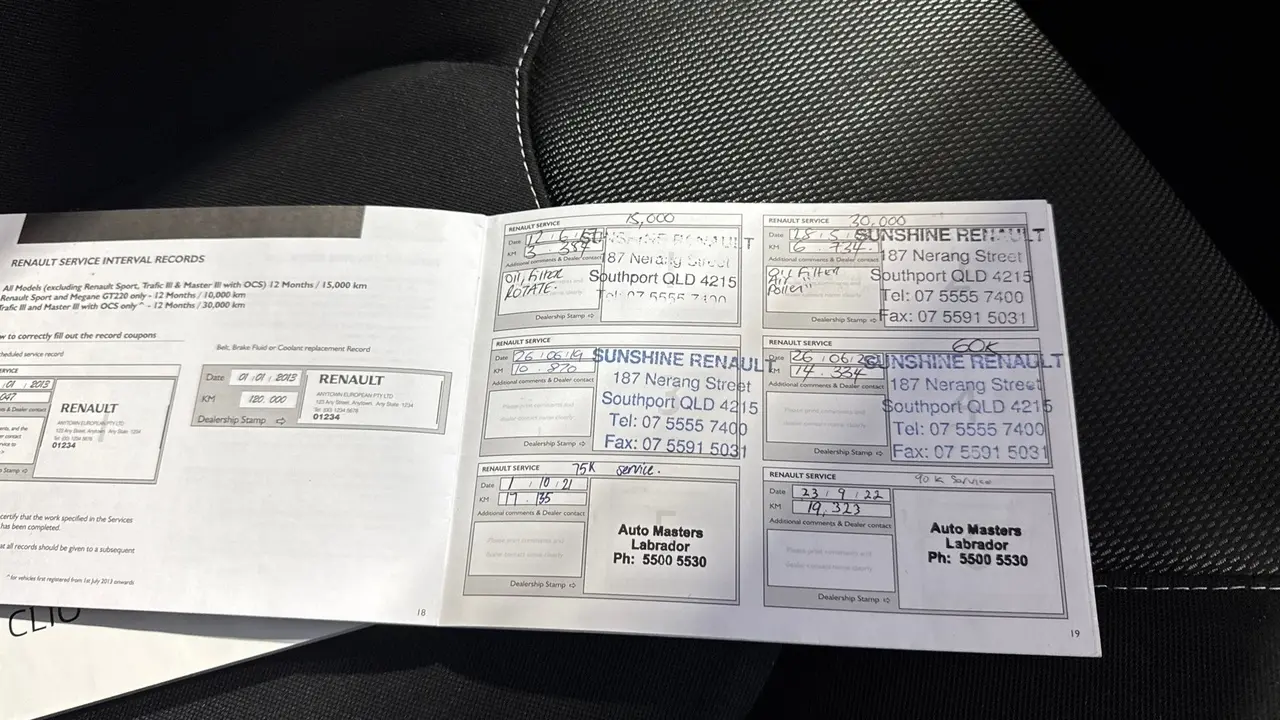 RENAULT SERVICE INTERVAL RECORDS
All Models (excluding Renault Sport, Trafic III & Master III with OCS) 12 Months / 15,000 km
Renault Sport and Megane GT220 only - 12 Months / 10,000 km
Trafic III and Master III with OCS only ^ - 12 Months / 30,000 km
w to correctly fill out the record coupons
cheduled service record
Belt, Brake Fluid or Coolant replacement Record
ERVICE
01 2013
047
ts & Dealer contact
RENAULT
ANYTOWN EUROPEAN PTY LTD
123 Any Street, Anytown Any State 1234
Tel: (00) 1234 5678
01234
p Stamp
Date 01 01 2013
KM 120.000
Dealership Stamp
RENAULT
ANYTOWN EUROPEAN PTY LTD
123 Any Street, Anytown Any State 1234
Tel: (00) 1234 5678
01234
certify that the work specified in the Services
has been completed.
at all records should be given to a subsequent
^ for vehicles first registered from 1st July 2013 onwards
18
CLIO
RENAULT SERVICE 15,000
Date 12 6
KM 3 384
Additional comments & Dealer contact
OIL, FILTER
ROTATE.
SUNSHINE RENAULT
187 Nerang Street
Southport QLD 4215
Tel: 07 5555 7400
Dealership Stamp
RENAULT SERVICE 30,000
Date 28 5
KM 6 734
Additional comments & Dealer contact
OIL FILTER
AIR
Pollen
SUNSHINE RENAULT
187 Nerang Street
Southport QLD 4215
Tel: 07 5555 7400
Fax: 07 5591 5031
Dealership Stamp
RENAULT SERVICE
Date 26 06 19
KM 10 870
Additional comments & Dealer contact
Please print comments and
dealer contact name clearly
SUNSHINE RENAULT
187 Nerang Street
Southport QLD 4215
Tel: 07 5555 7400
Fax: 07 5591 5031
Dealership Stamp
RENAULT SERVICE 60K
Date 26 06
KM 14 334
Additional comments & Dealer contact
Please print comments and
dealer contact name clearly
SUNSHINE RENAULT
187 Nerang Street
Southport QLD 4215
Tel: 07 5555 7400
Fax: 07 5591 5031
Dealership Stamp
RENAULT SERVICE 75K service.
Date 1 10 21
KM 17 135
Additional comments & Dealer contact
Please print comments and
dealer contact name clearly
Auto Masters
Labrador
Ph: 5500 5530
Dealership Stamp
RENAULT SERVICE 90 K Service
Date 23 9 22
KM 19,323
Additional comments & Dealer contact
Please print comments and
dealer contact name clearly
Auto Masters
Labrador
Ph: 5500 5530
Dealership Stamp
19